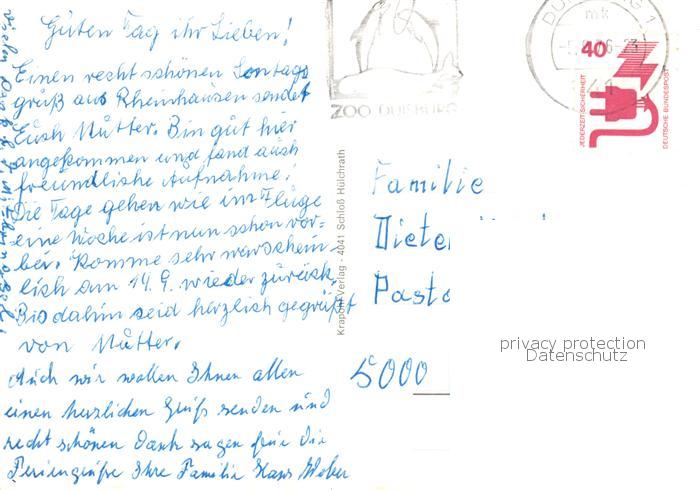 Guten Tag ihr Lieben!
Einen recht schönen Sontags
gruß aus Rheinhausen sendet
Euch Mutter. Bin gut hier
angekommen und fand auch
freundlishe Aufnahme!
Die Tage gehen wie im Fluge
eine Woche ist nun schon vor-
bei. Komme sehr warschein-
lish am 14. 9. wieder zurück,
Bis dahin seid herzlich gegrüßt
von Mutter.
Auch wir wollen Ihnen allen
einen herzlichen Gruß senden und
recht schönen Dank sagen für die
Feriengrüße Ihre Familie Hans Weber
vielen Dank
ZOO DUISBURG
DUISBURG 1
mk
41
40
JEDERZEIT SICHERHEIT
DEUTSCHE BUNDESPOST
Krapohl-Verlag · 4041 Schloß Hülchrath
Familie
Diete
Pasto
5000
privacy protection
Datenschutz